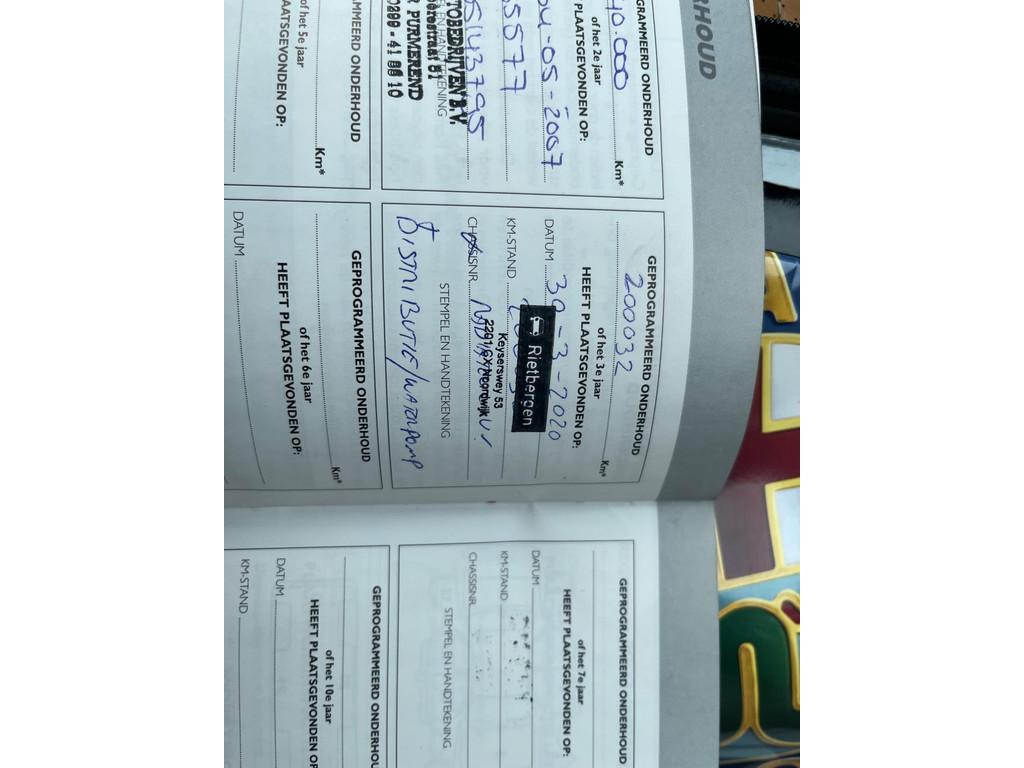 RHOUD
GRAMMEERD ONDERHOUD
40.000 Km*
of het 2e jaar
PLAATSGEVONDEN OP:
04-05-2007
5577
51143795
EN HANDTEKENING
TOBEDRIJVEN B.V.
PURMEREND
0299 - 41
GEPROGRAMMEERD ONDERHOUD
200032 Km*
of het 3e jaar
HEEFT PLAATSGEVONDEN OP:
DATUM 30-3-2020
KM-STAND
CHASSISNR.
Rietbergen
Keyserswey 53
2201 CX Noordwijk
STEMPEL EN HANDTEKENING
DISTRIBUTIE/WATERPOMP
MMEERD ONDERHOUD
Km*
of het 5e jaar
AATSGEVONDEN OP:
GEPROGRAMMEERD ONDERHOUD
Km*
of het 6e jaar
HEEFT PLAATSGEVONDEN OP:
DATUM
GEPROGRAMMEERD ONDERHOUD
of het 7e jaar
HEEFT PLAATSGEVONDEN OP:
DATUM
KM-STAND
CHASSISNR.
STEMPEL EN HANDTEKENING
GEPROGRAMMEERD ONDERHOU
of het 10e jaar
HEEFT PLAATSGEVONDEN OP:
DATUM
KM-STAND